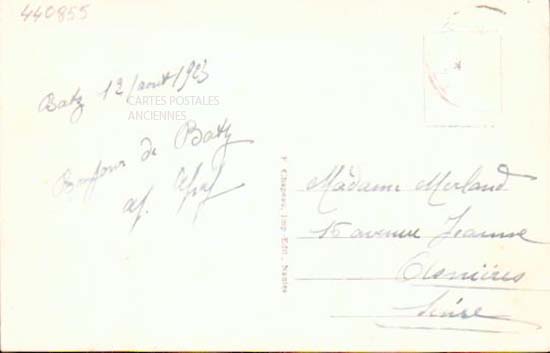 440855
Batz 12/aout/1923
CARTES POSTALES
ANCIENNES
Bonjour de Batz
Madame Merland
15 avenue Jeanne
Asnières
Seine
F. Chapeau, Imp.-Edit., Nantes